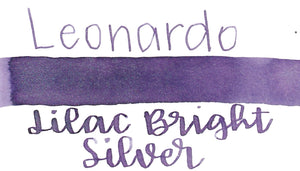 Leonardo
Lilac Bright
Silver